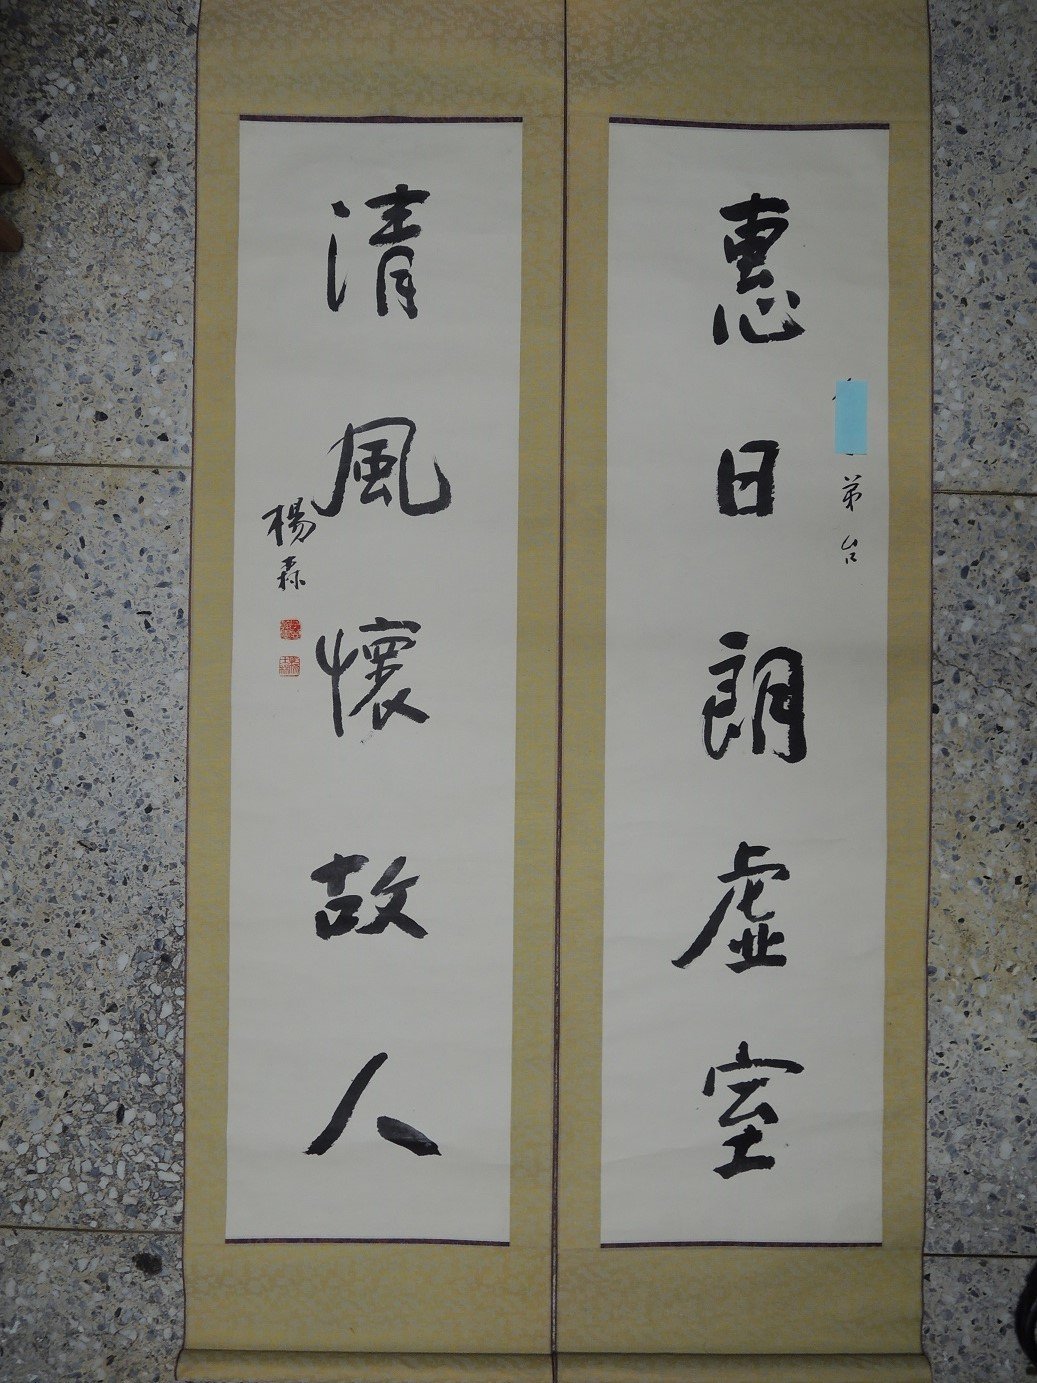 惠日朗虛室
弟台
清風懷故人
楊森